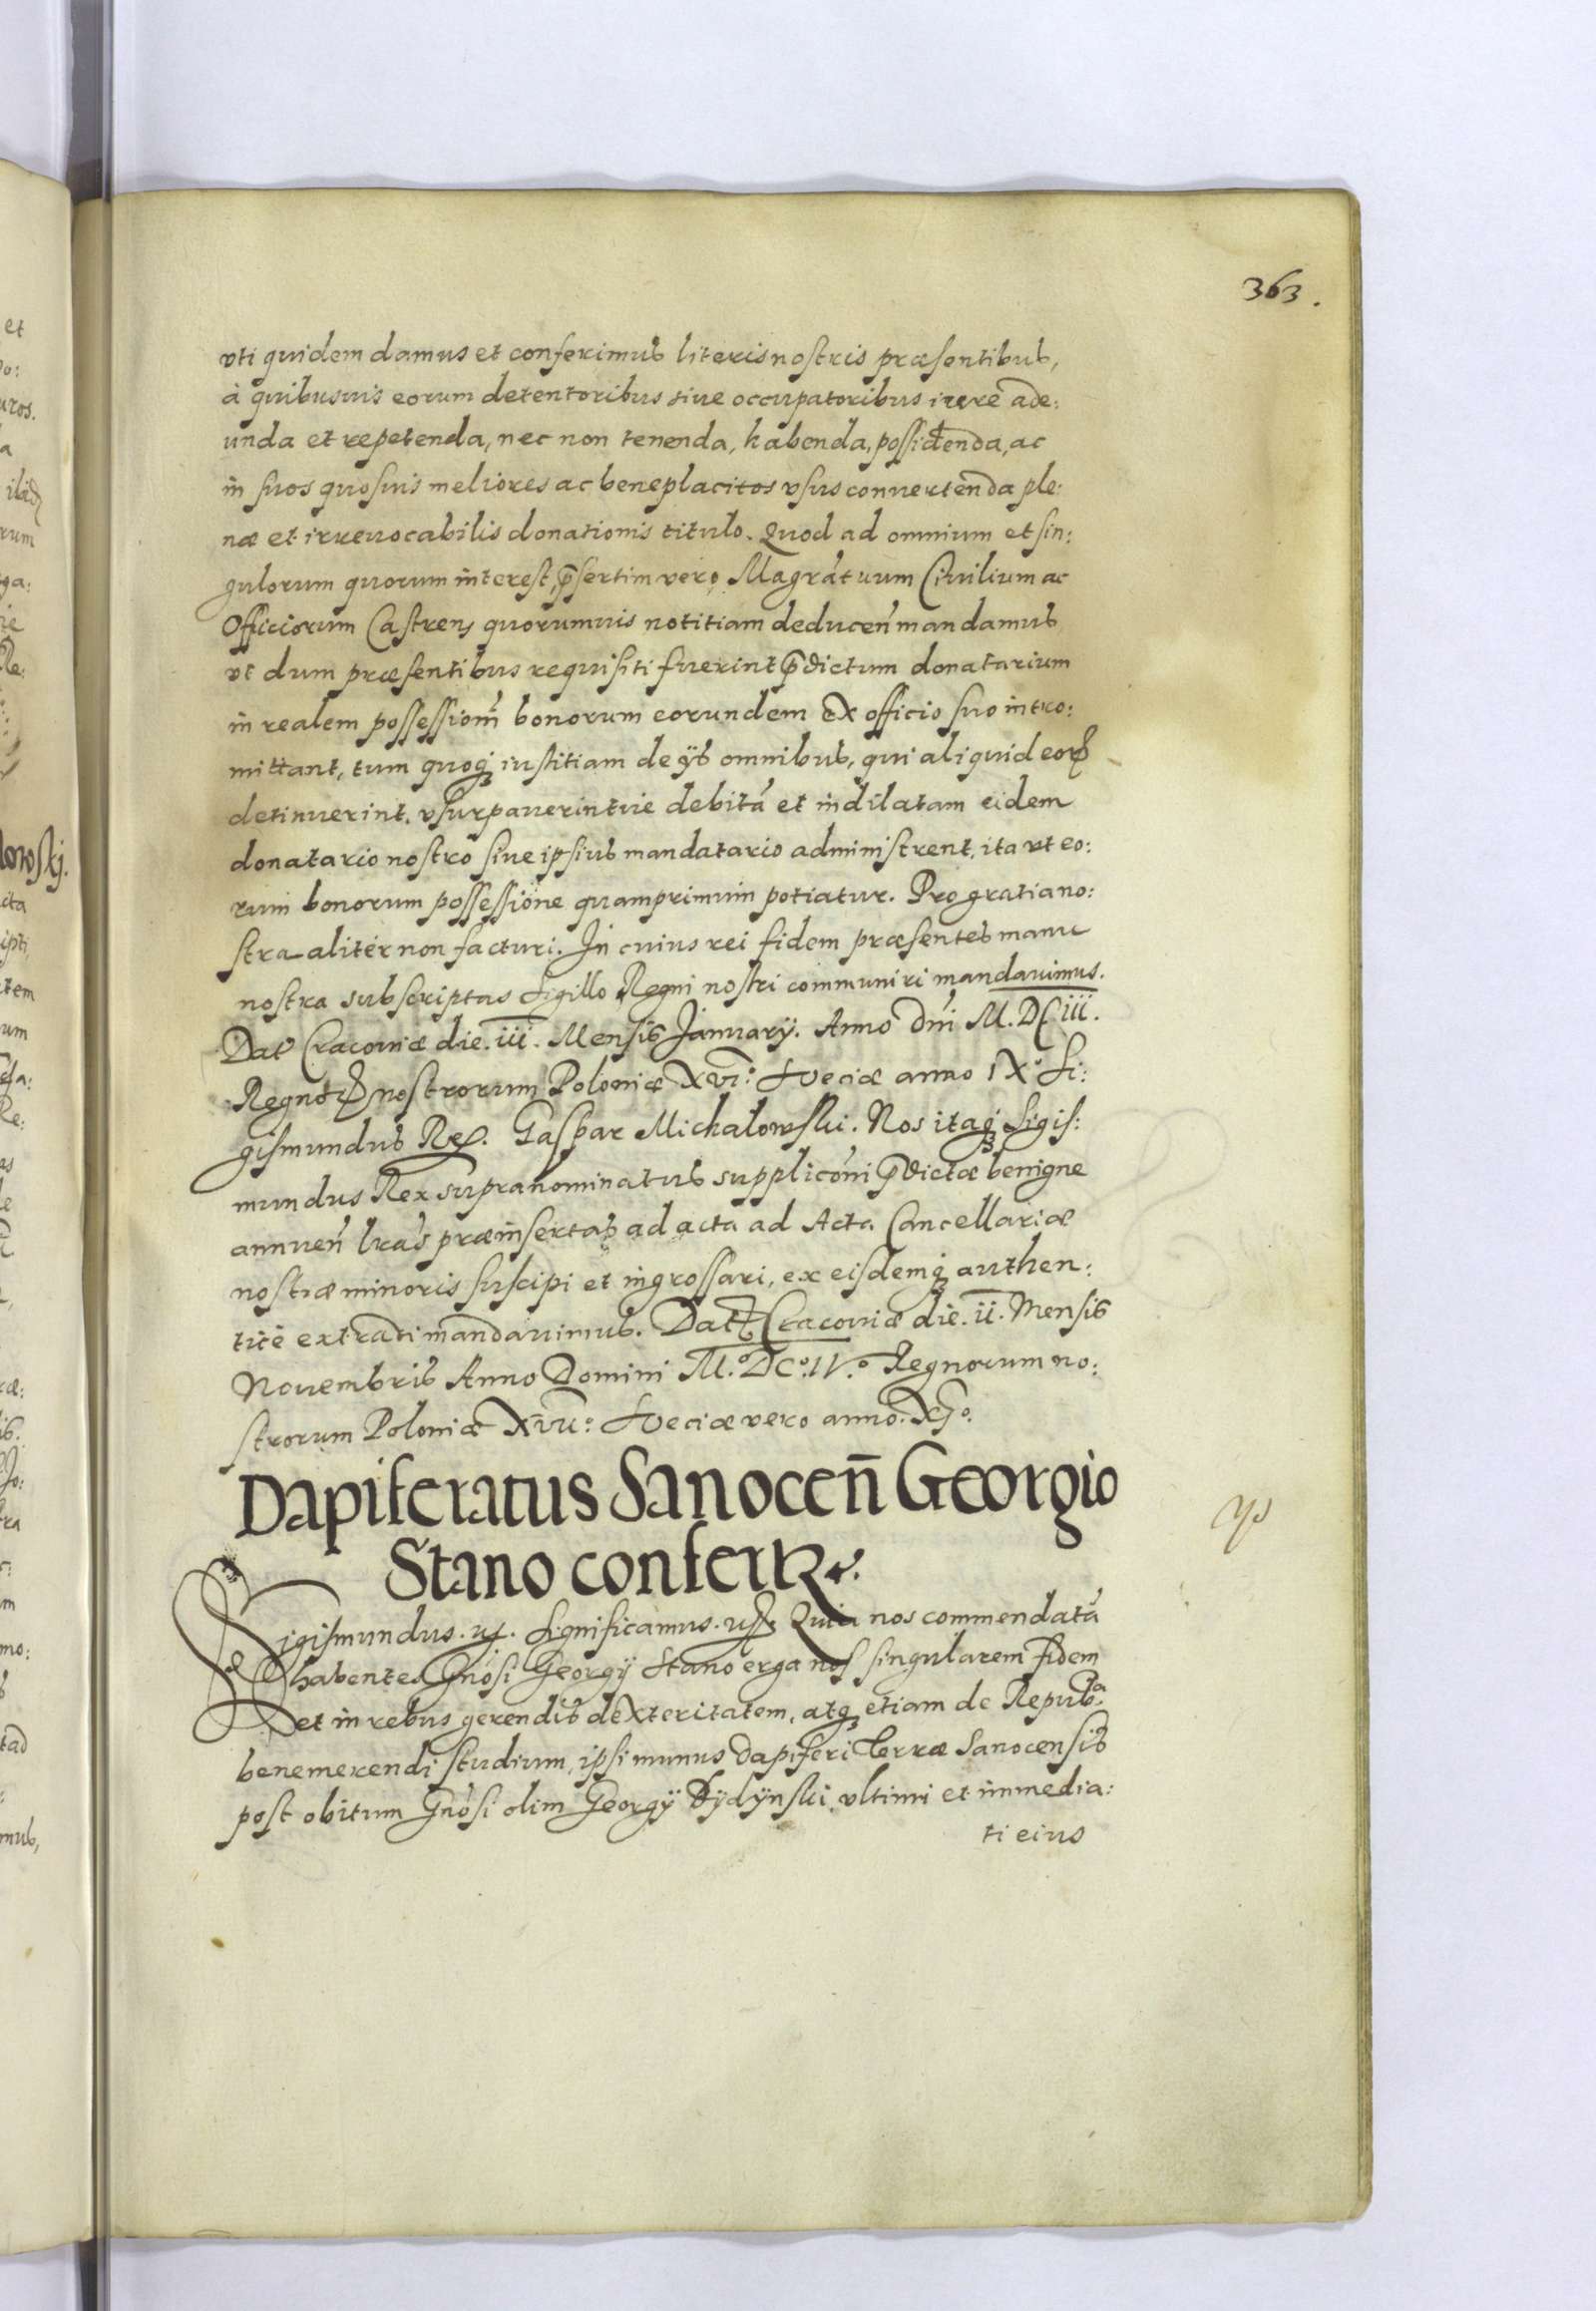 363.
vti quidem damus et conferimus literis nostris præsentibus,
à quibusuis eorum detentoribus siue occupatoribus iure ade:
unda et repetenda, nec non tenenda, habenda, possidenda, ac
in suos quosuis meliores ac beneplacitos vsus conuertenda ple:
næ et irreuocabilis donationis titulo. Quod ad omnium et sin:
gulorum quorum interest, p̄sertim vero Magrátuum Ciuilium ac
Officiorum Castren̄ quorumuis notitiam deducen̄ mandamus
vt dum præsentibus requisiti fuerint p̄dictum donatarium
in realem possessionm̄ bonorum eorundem ex officio suo intro:
mittant, tum quoqꝫ iustitiam de ijs omnibus, qui aliquid eorꝝ
detinuerint. vsurpauerintue debitā et indilatam eidem
donatario nostro siue ipsius mandatario administrent, ita vt eo:
rum bonorum possessione quamprimum potiatur. Pro gratia no:
stra aliter non facturi. In cuius rei fidem præsentes manu
nostra subscriptas Sigillo Regni nostri communiri mandauimus.
Dat̄ Cracouiæ die. iii. Mensis January. Anno dn̄i M. DC iii.
Regnorꝝ nostrorum Poloniæ XVI.° Sueciæ anno IX.° Si:
gismundus Rex. Gaspar Michalowski. Nos itaqꝫ Sigis:
mundus Rex supranominatus supplicōni p̄dictæ benigne
annuen̄ lrās præinsertas ad acta ad Acta Cancellariæ
nostræ minoris suscipi et ingrossari, ex eisdemqꝫ authen:
ticè extradi mandauimus. Datꝫ Cracouiæ die. ii. Mensis
Nouembris Anno Domini M.° DC.° IV.° Regnorum no:
strorum Poloniæ XVII.° Sueciæ vero anno. XI°.
Dapiferatus Sanocen̄ Georgio
Stano confertR.
Sigismundus. Significamus. Quia nos commendatā
habentes Gnōsi Georgÿ Stano erga nos singularem fidem
et in rebus gerendis dexteritatem, atqꝫ etiam de Repub.ᵃ
benemerendi studium, ipsi munus Dapiferi terræ Sanocensis
post obitum Gnōsi olim Georgÿ Dÿdÿnski, vltimi et immedia:
ti eius